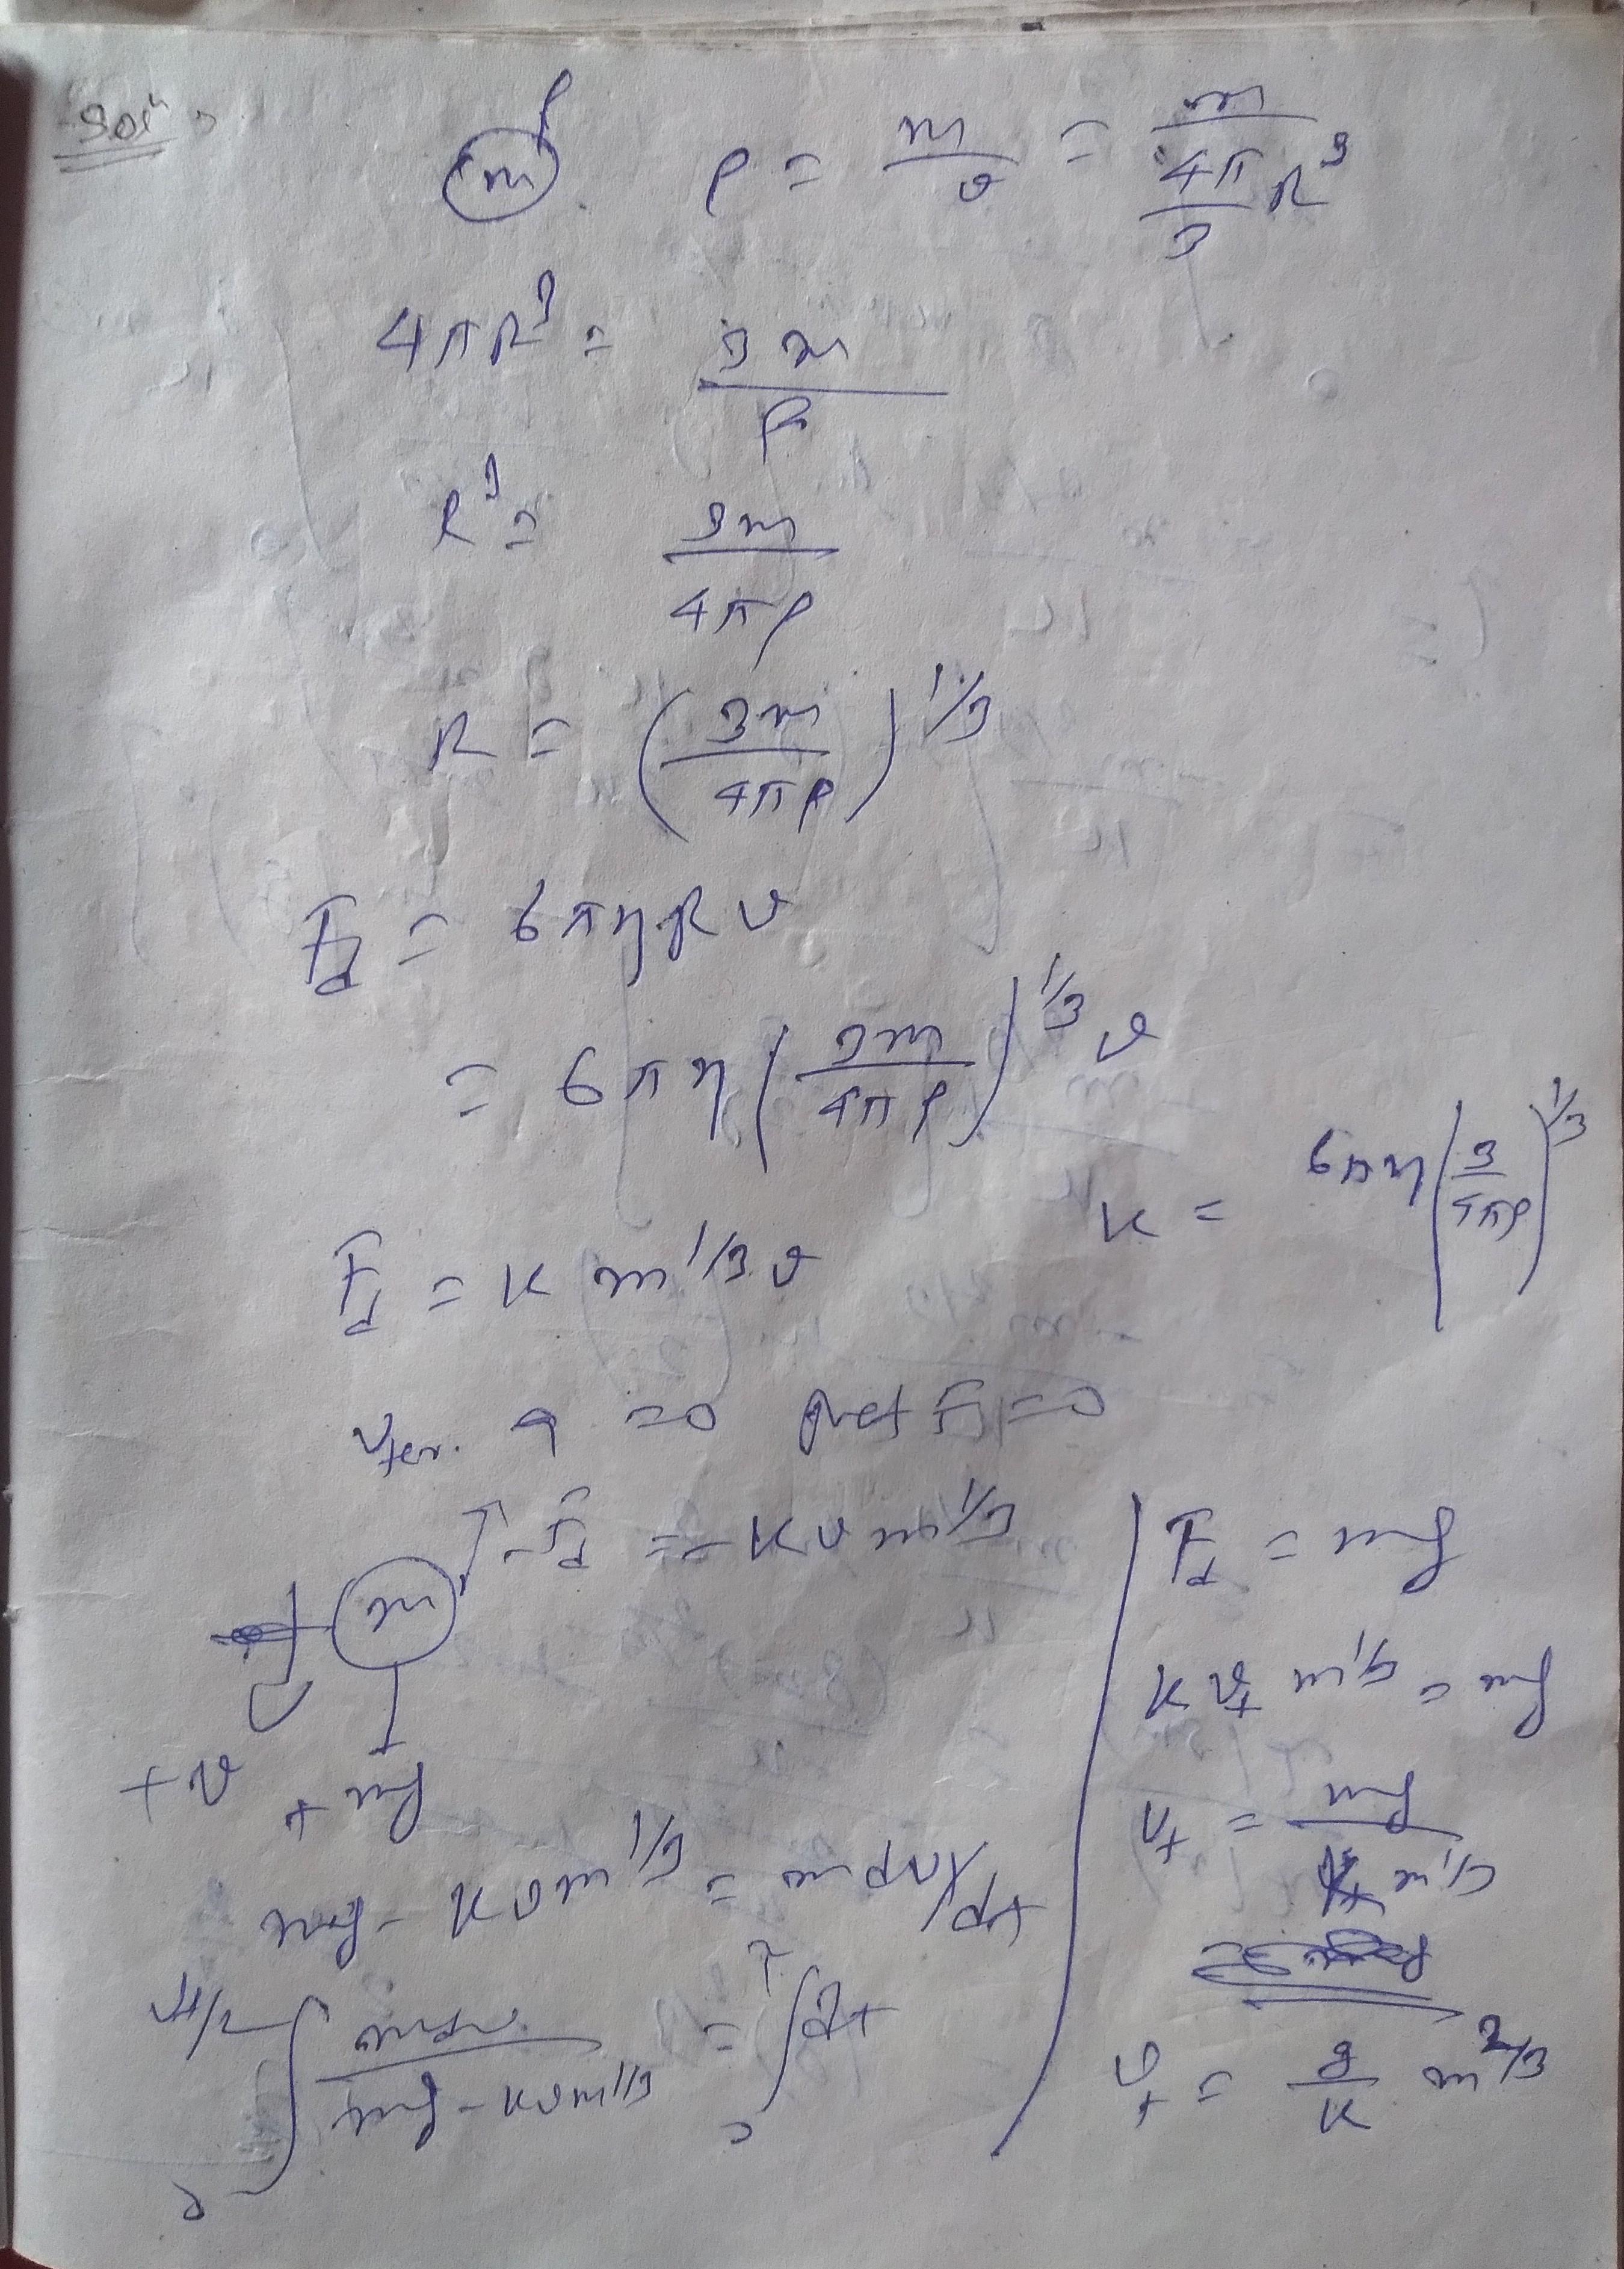 Solⁿ
m ρ ρ = m/v = m/(4π/3 R³)
4πR³ = 3m/ρ
R³ = 3m/4πρ
R = (3m/4πρ)^1/3
F_d = 6πηRv
= 6πη(3m/4πρ)^1/3 v
K = 6πη(3/4πρ)^1/3
F_d = K m^1/3 v
v_ter. a = 0 net F = 0
m -F_d = -Kvm^1/3
+v +mg
mg - Kvm^1/3 = mdv/dt
∫ mdv/(mg - Kvm^1/3) = ∫dt
F_d = mg
K v_t m^1/3 = mg
v_t = mg/(K m^1/3)
v_t = g/K m^2/3